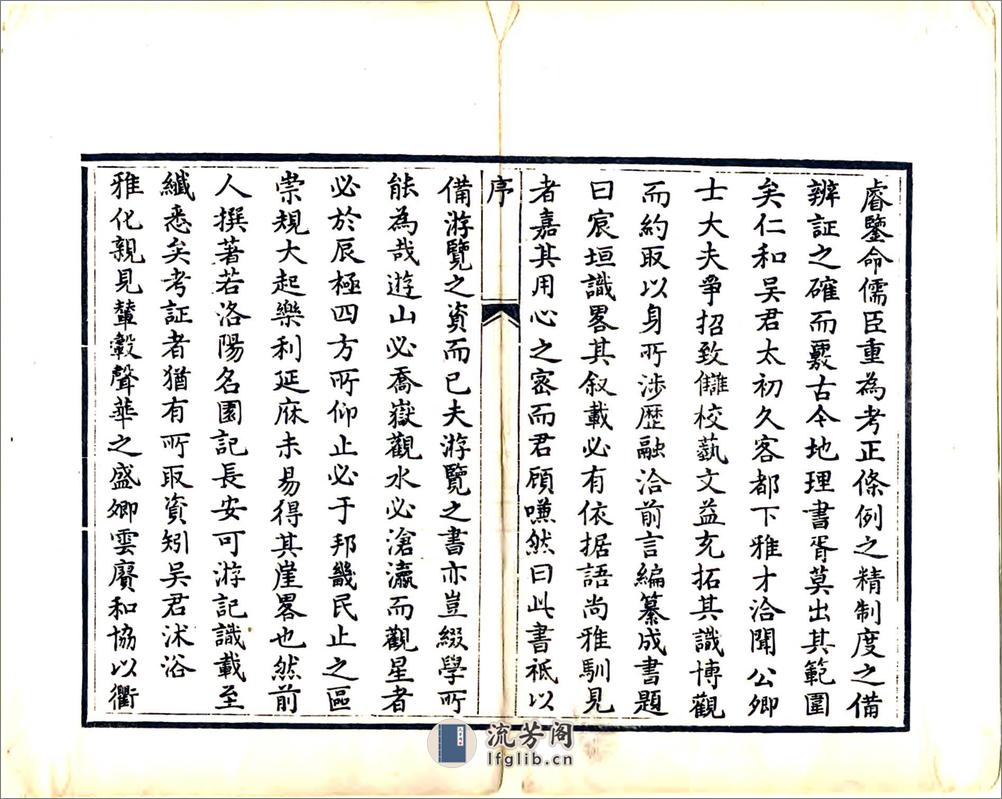 睿鑒命儒臣重為考正條例之精制度之備
辨証之確而覈古今地理書胥莫出其範圍
矣仁和吴君太初久客都下雅才洽聞公卿
士大夫爭招致讎校藝文益充拓其識博觀
而約取以身所涉歷融洽前言編纂成書題
曰宸垣識畧其叙載必有依据語尚雅馴見
者嘉其用心之密而君顧嗛然曰此書祗以
序
備游覽之資而已夫游覽之書亦豈綴學所
能為哉遊山必喬嶽觀水必滄瀛而觀星者
必於辰極四方所仰止必于邦畿民止之區
崇規大起樂利延庥未易得其崖畧也然前
人撰著若洛陽名園記長安可游記識載至
纖悉矣考証者猶有所取資矧吴君沐浴
雅化親見輦轂聲華之盛卿雲賡和協以衢
流芳阁
lfglib.cn